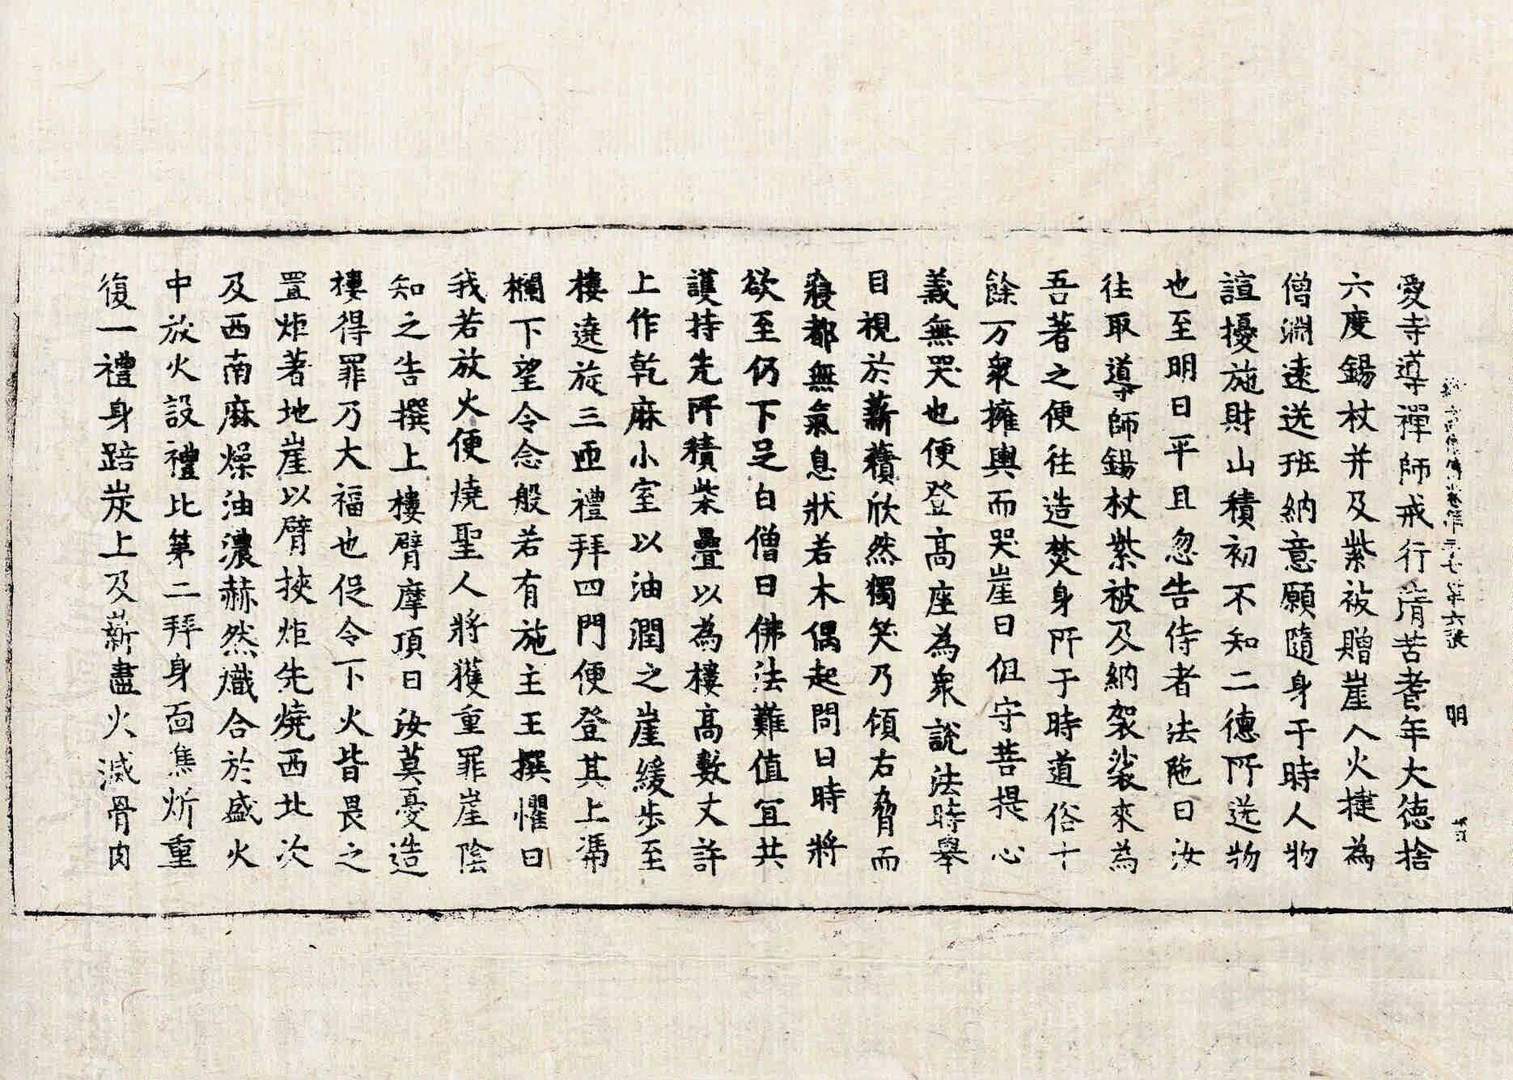 愛寺導禪師戒行清苦耆年大德捨
續高僧傳卷第二十七 第六張 明
六度錫杖并及紫被贈崖入火揵為
僧淵遠送班納意願隨身于時人物
諠擾施財山積初不知二德所送物
也至明日平旦忽告侍者法陁曰汝
往取導師錫杖紫被及納袈裟來為
吾著之便往造焚身所于時道俗十
餘万衆擁輿而哭崖曰但守菩提心
義無哭也便登高座為衆說法時舉
目視於薪𧂐欣然獨笑乃傾右脅而
寢都無氣息狀若木偶起問曰時將
欲至仍下足白僧曰佛法難值宜共
護持先所積柴疊以為樓高數丈許
上作乾麻小室以油潤之崖緩步至
樓遶旋三迊禮拜四門便登其上馮
欄下望令念般若有施主王撰懼曰
我若放火便燒聖人將獲重罪崖陰
知之告撰上樓臂摩頂曰汝莫憂造
樓得罪乃大福也促令下火皆畏之
置炬著地崖以臂挾炬先燒西北次
及西南麻燥油濃赫然熾合於盛火
中放火設禮比第二拜身面焦炘重
復一禮身踣炭上及薪盡火滅骨肉